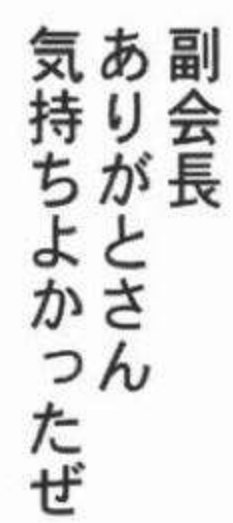 副会長
ありがとさん
気持ちよかったぜ